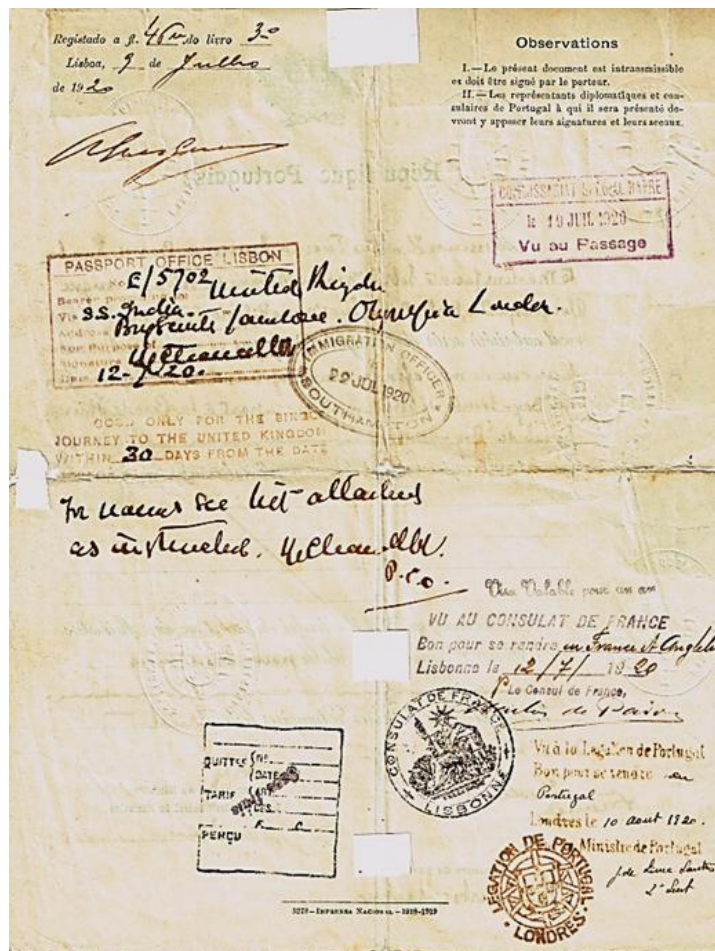 Registado a fl. 46 v do livro 3º
Lisboa, 9 de Julho
de 1920
Observations
I.—Le présent document est intransmissible
et doit être signé par le porteur.
II.—Les représentants diplomatiques et con-
sulaires de Portugal à qui il sera présenté de-
vront y apposer leurs signatures et leurs sceaux.
COMMISSARIAT SPÉCIAL HAVRE
le 19 JUIL 1920
Vu au Passage
PASSPORT OFFICE LISBON
No E/5702 United Kingdom
Via S.S. India.
Olympia London.
12-7-20.
IMMIGRATION OFFICER
22 JUL 1920
SOUTHAMPTON
GOOD ONLY FOR THE SINGLE
JOURNEY TO THE UNITED KINGDOM
WITHIN 30 DAYS FROM THE DATE
For names see list attached
as instructed.
P.C.O.
Visa Valable pour un an
VU AU CONSULAT DE FRANCE
Bon pour se rendre en France et Angleterre
Lisbonne le 12/7/1920
Le Consul de France,
CONSULAT DE FRANCE
LISBONNE
QUITTCE
DATE
TARIF ART
PERÇU F. C.
Vu à la Légation de Portugal
Bon pour se rendre au
Portugal
Londres le 10 aout 1920.
Ministre de Portugal
LEGATION DE PORTUGAL
LONDRES
5278—IMPRENSA NACIONAL—1918-1919